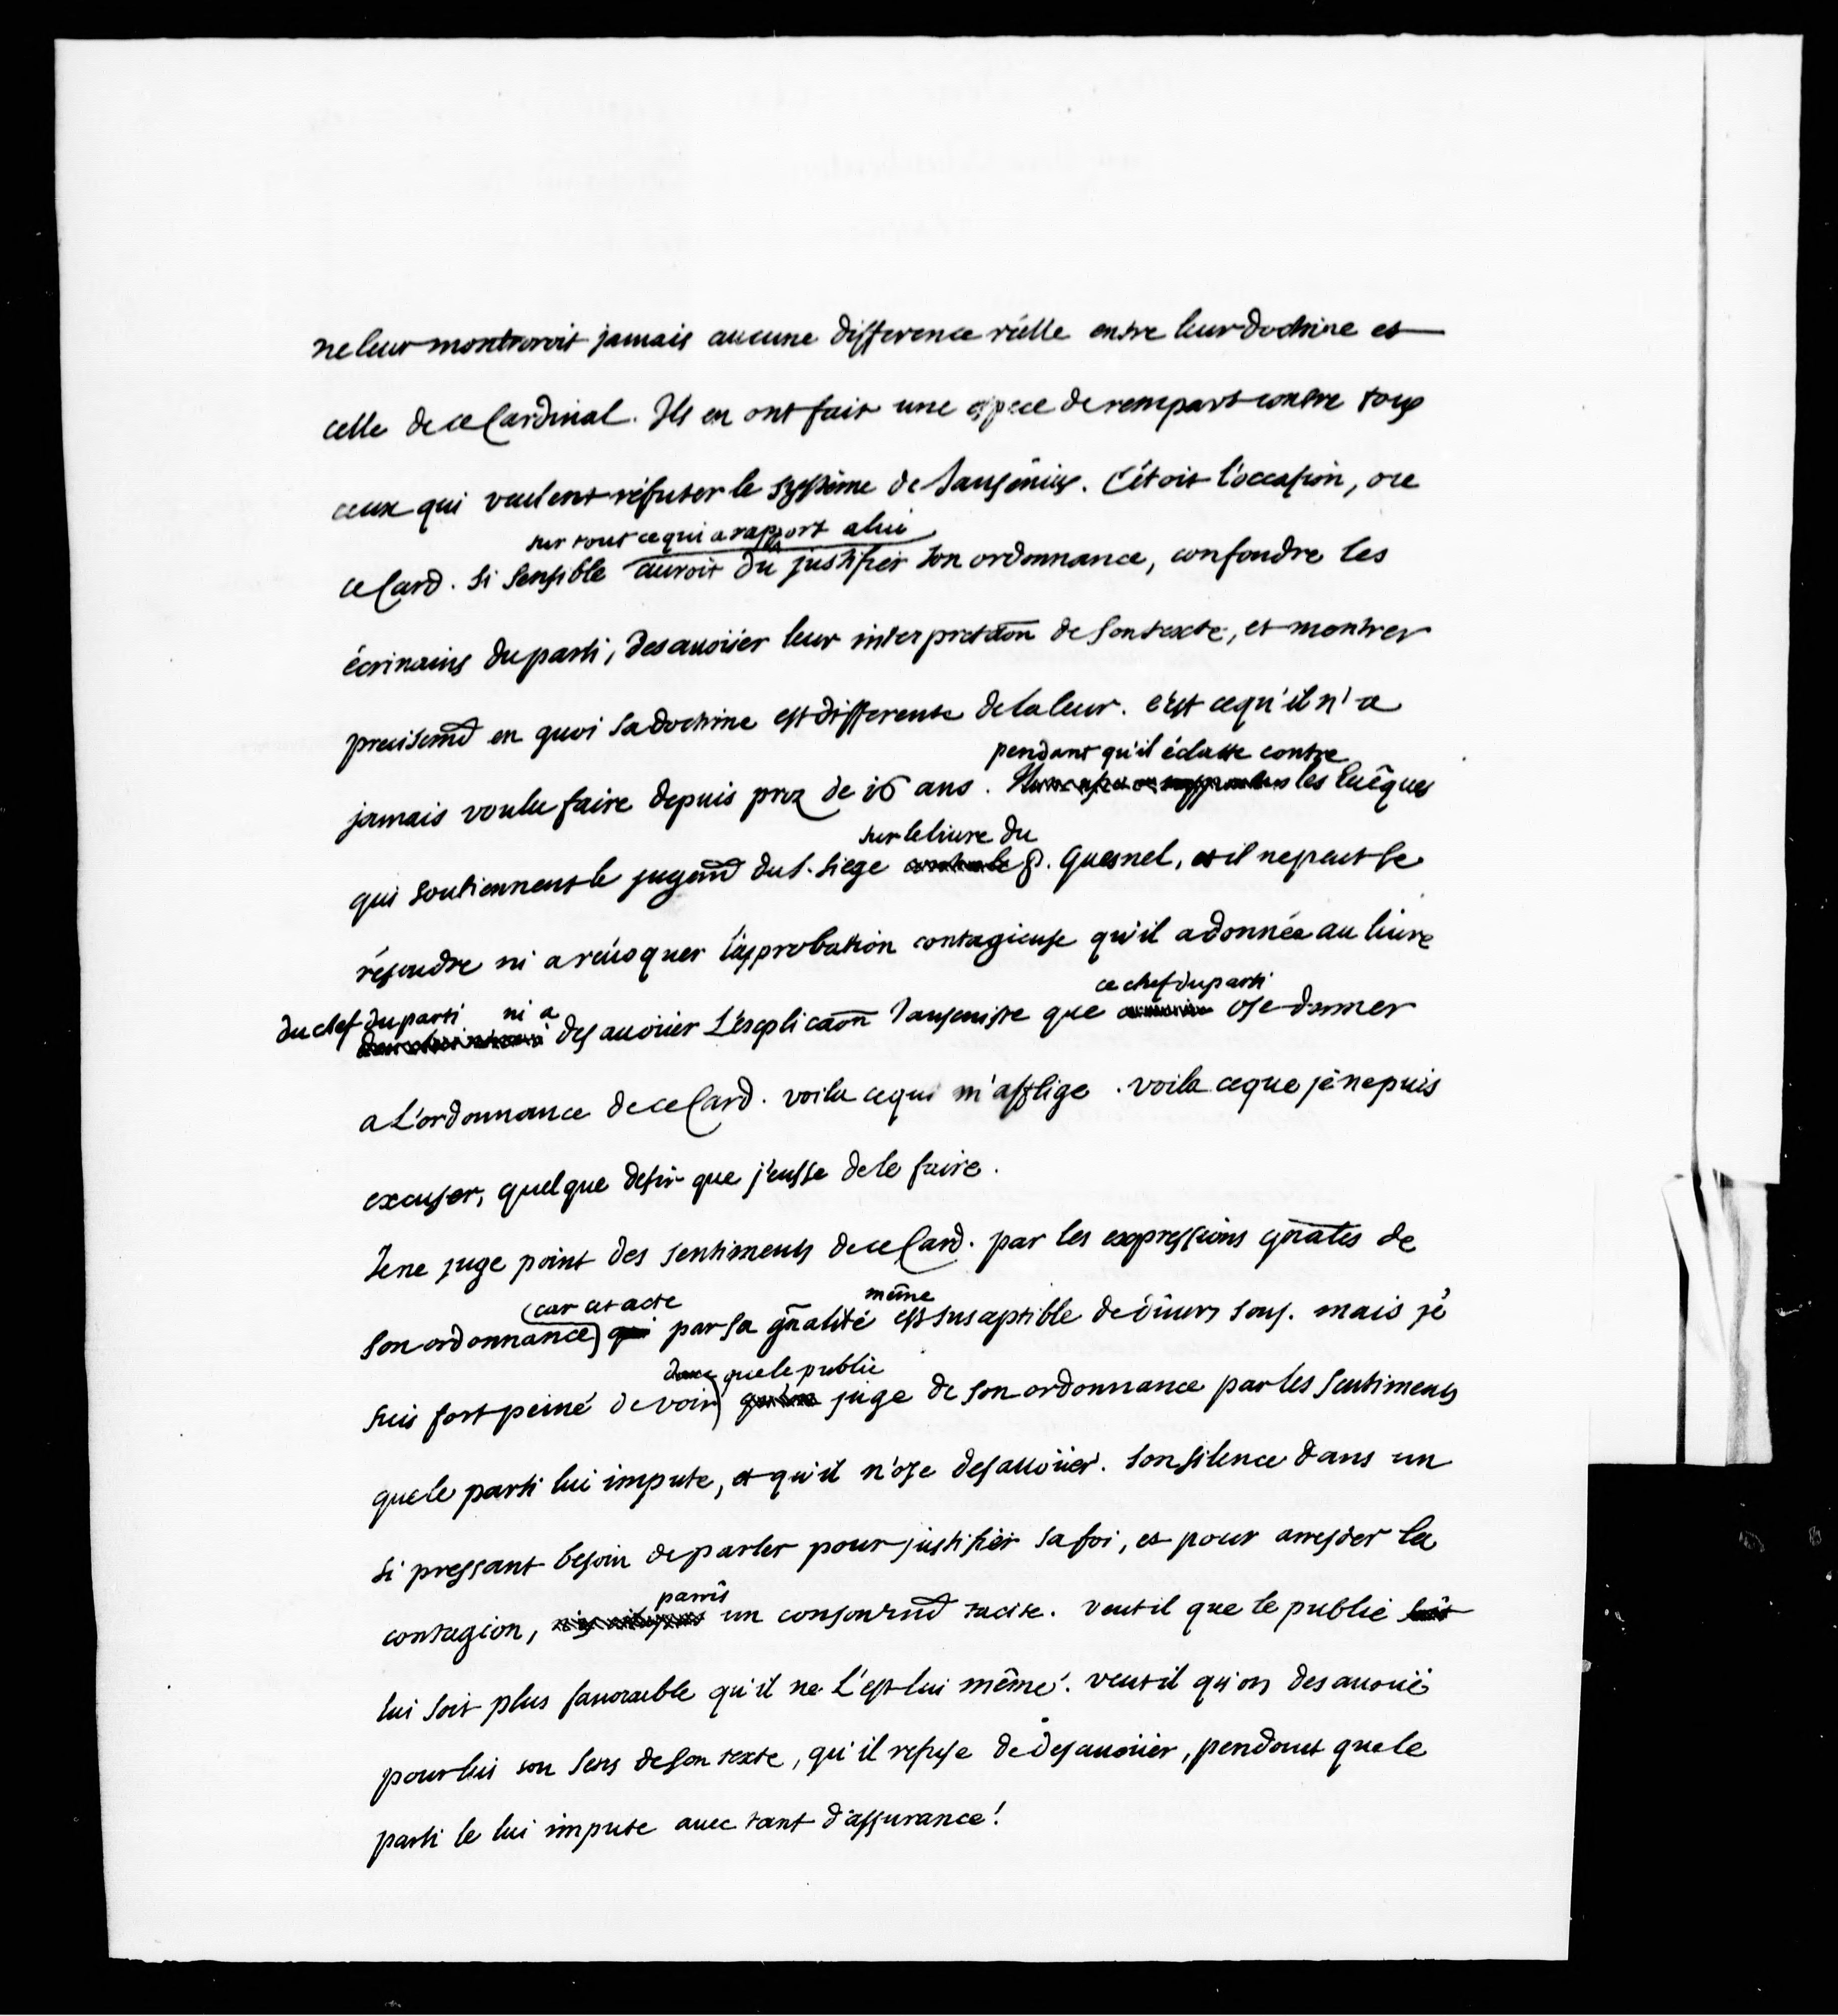 ne leur montreroit jamais aucune difference réelle entre leur doctrine et
celle de ce Cardinal. Ils en ont fait une espece de rempart contre tous
ceux qui veulent réfuter le système de Jansénius. C'étoit l'occasion, ou
sur tout ce qui a rapport a lui
ce Card. si sensible auroit du justifier son ordonnance, confondre les
écrivains du parti, desavoüer leur interpretaõn de son texte, et montrer
precisemt en quoi sa doctrine est differente de la leur. c'est ce qu'il n'a
pendant qu'il éclatte contre
jamais voulu faire depuis prez de 16 ans. les Evêques
sur le livre du
qui soutiennent le jugemt du S. Siege P. Quesnel, et il ne peut se
résoudre ni a révoquer l'approbation contagieuse qu'il a donnée au livre
ce chef du parti
du chef du parti ni a desavoüer L'explicaõn Janseniste que ose donner
a L'ordonnance de ce Card. voila ce qui m'afflige. voila ce que je ne puis
excuser, quelque desir que j'eusse de le faire.
Je ne juge point des sentiments de ce Card. par les expressions gñales de
car cet acte même
son ordonnance) qui par sa gñalité est susceptible de divers sens. mais je
que le public
suis fort peiné de voir juge de son ordonnance par les sentiments
que le parti lui impute, et qu'il n'ose desavoüer. Son silence dans un
si pressant besoin de parler pour justifier sa foi, et pour arrester la
paroît
contagion, un consentemt tacite. veut il que le public soit
lui soit plus favorable qu'il ne L'est lui même. veut il qu'on desavoüe
pour lui son sens de son texte, qu'il refuse de desavoüer, pendant que le
parti le lui impute avec tant d'assurance!